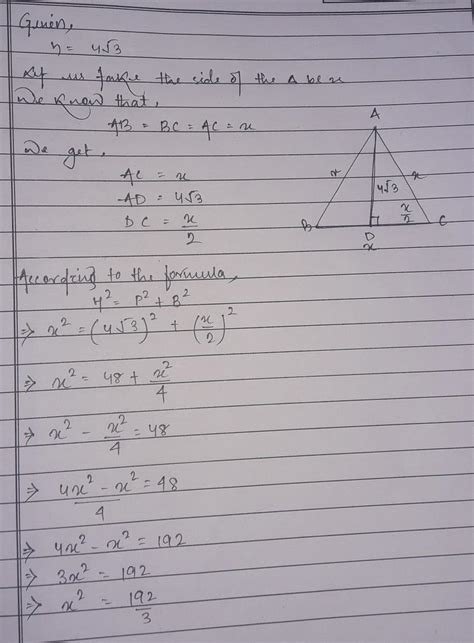 Given,
h = 4√3
Let us take the side of the Δ be x
We know that,
AB = BC = AC = x
We get,
AC = x
AD = 4√3
DC = x/2
A
x
4√3
x
x/2
B
D
C
x
According to the formula,
H² = P² + B²
⇒ x² = (4√3)² + (x/2)²
⇒ x² = 48 + x²/4
⇒ x² - x²/4 = 48
⇒ 4x² - x²/4 = 48
⇒ 4x² - x² = 192
⇒ 3x² = 192
⇒ x² = 192/3